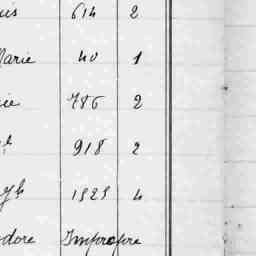 uis 614 2
Marie 40 1
cie 786 2
918 2
1323 4
odore Impropre